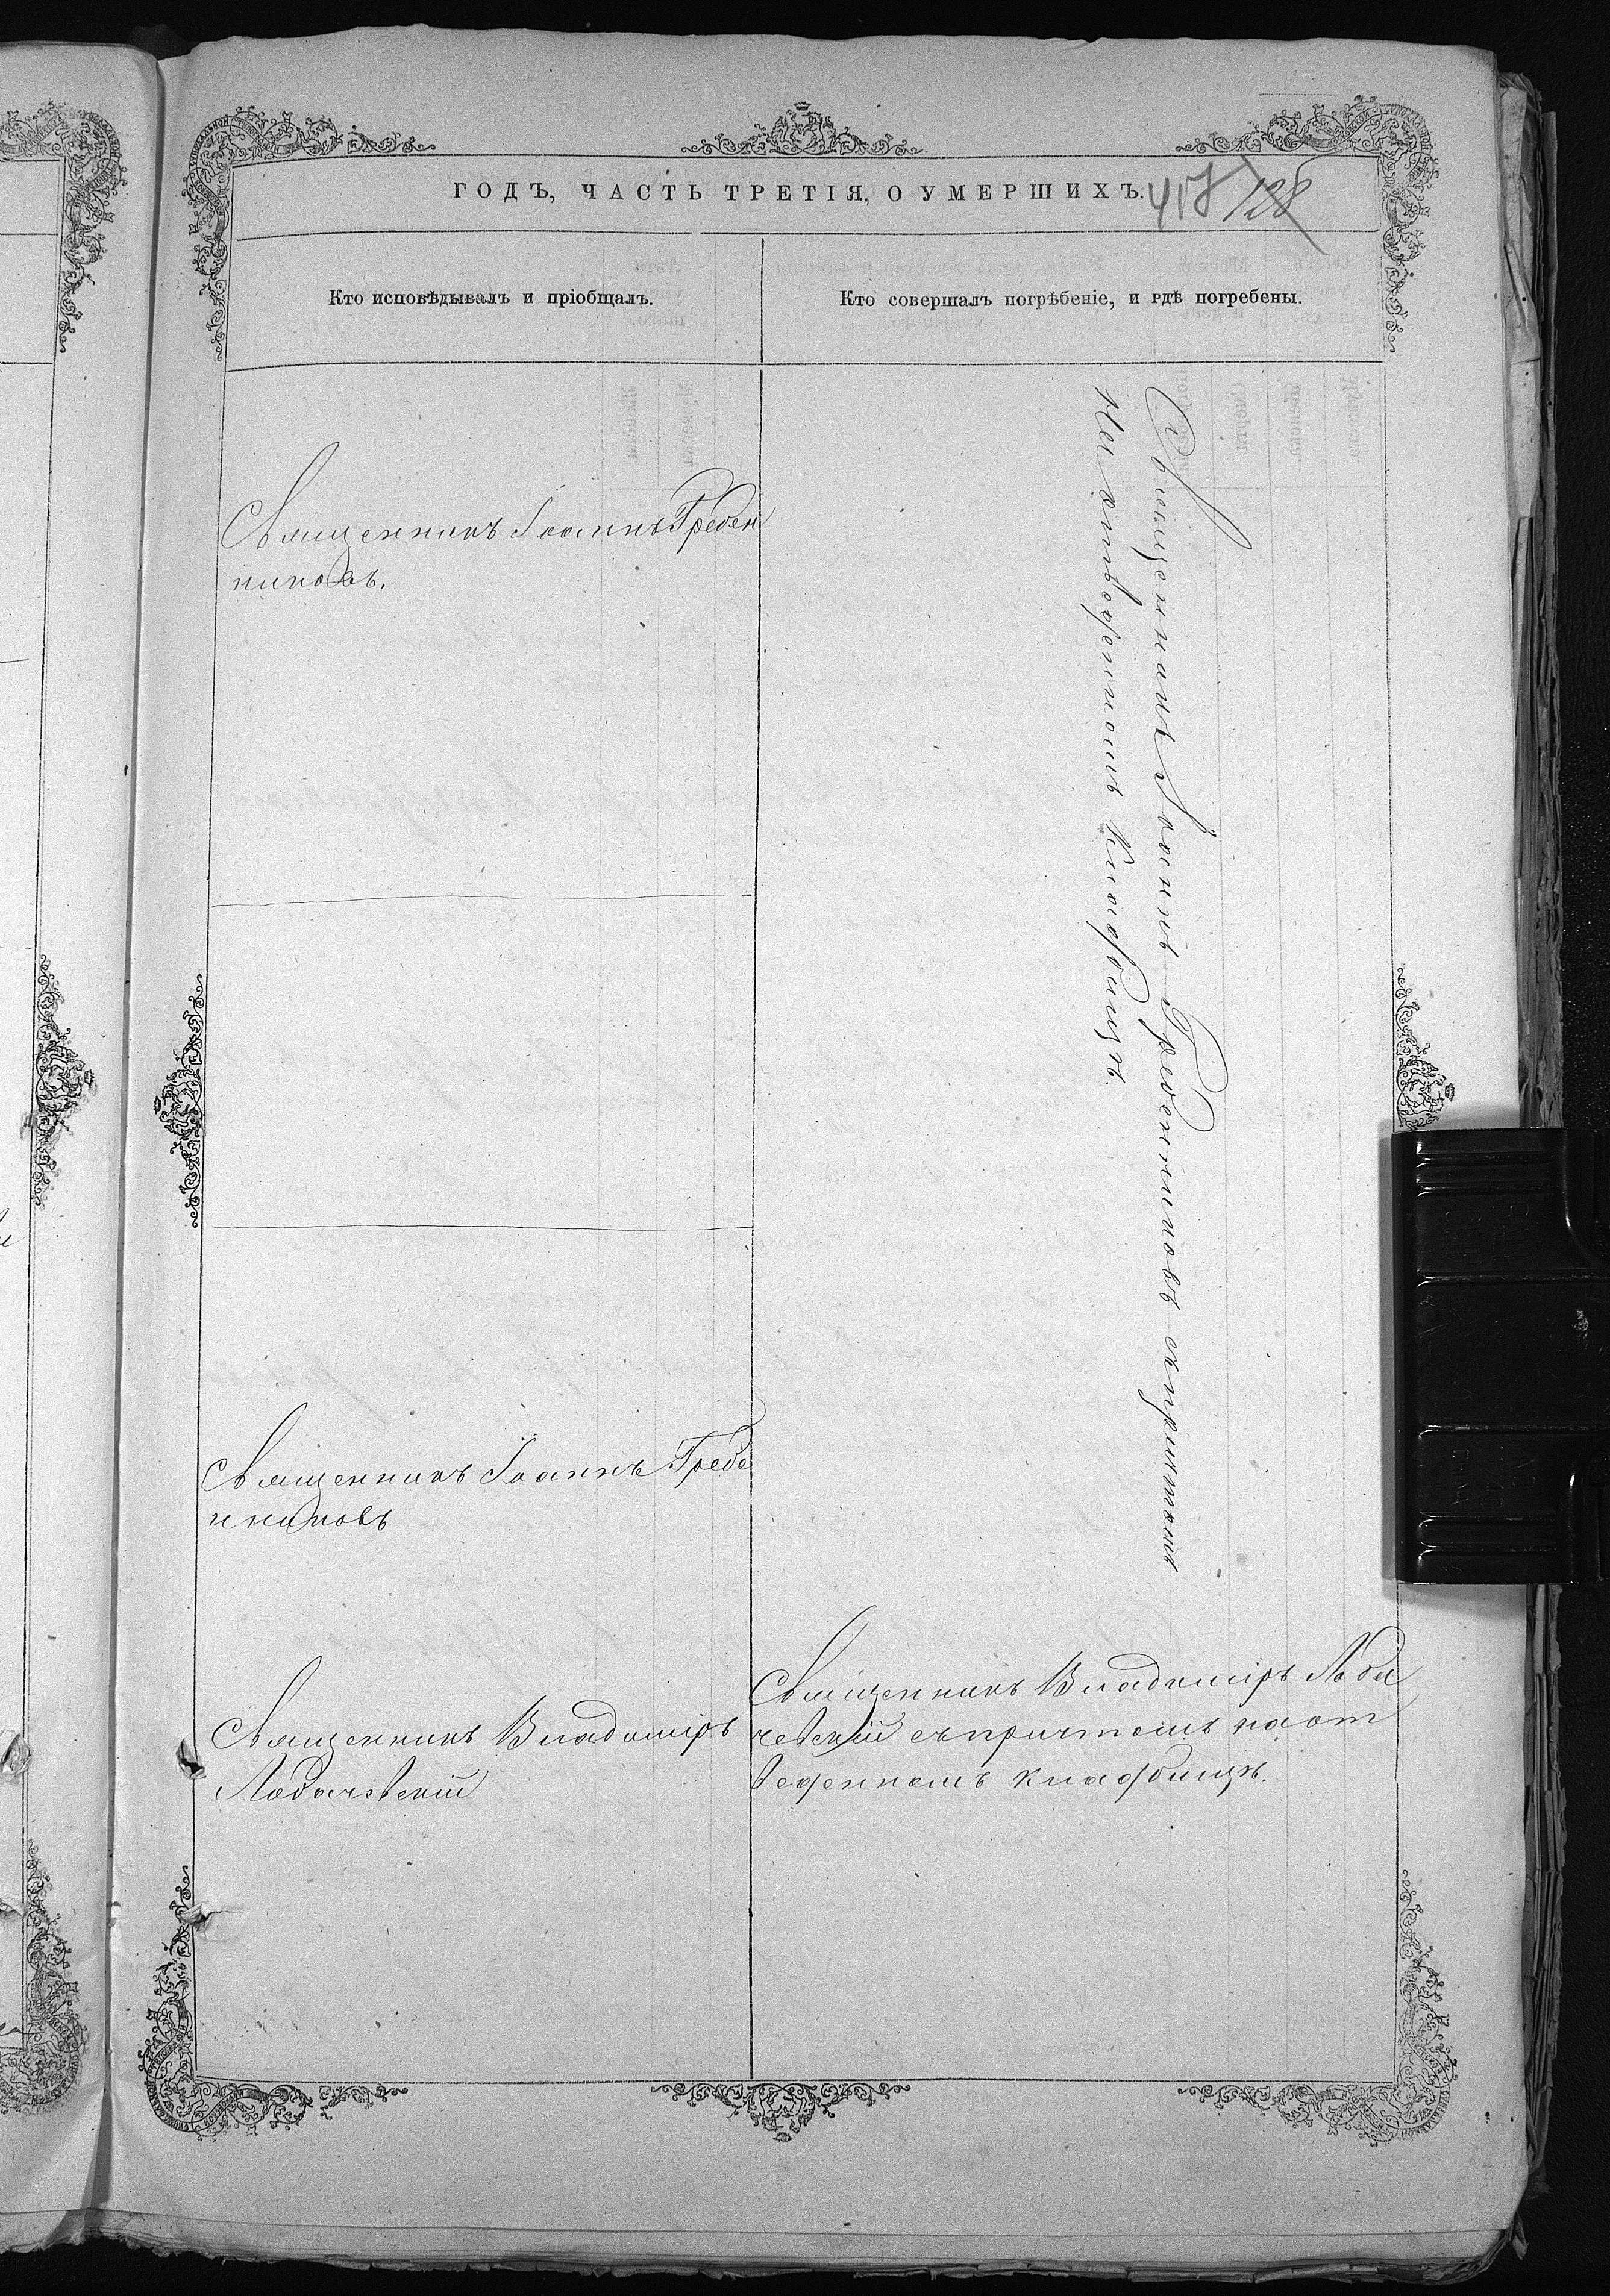 ГОДЪ, ЧАСТЬ ТРЕТІЯ, О УМЕРШИХЪ.
128
Кто исповѣдывалъ и пріобщалъ.
Кто совершалъ погрѣбеніе, и гдѣ погребены.
Священникъ Іоаннъ Гребен
никовъ.
Священникъ Іоаннъ Гребенниковъ съ причтомъ
На отведенномъ кладбищѣ.
Священникъ Іоаннъ Гребе
нниковъ
Священникъ Владиміръ
Лобачевскій
Священникъ Владиміръ Лоба
чевскій съ причтомъ на от
веденномъ кладбищѣ.